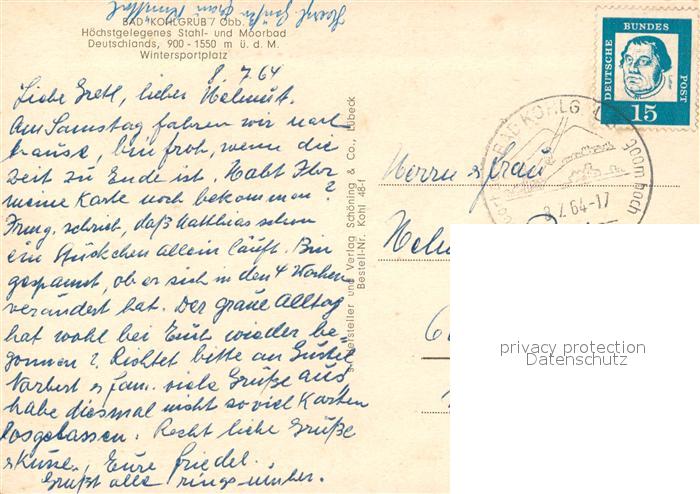 BAD KOHLGRUB / Obb.
Höchstgelegenes Stahl- und Moorbad
Deutschlands, 900 - 1550 m ü. d. M.
Wintersportplatz
8. 7. 64
Liebe Gretl, lieber Helmut.
Am Samstag fahren wir nach
hause, bin froh, wenn die
Zeit zu Ende ist. Habt Ihr
meine Karte noch bekommen?
schrieb, daß Matthias schon
ein Stückchen allein läuft. Bin
gespannt, ob er sich in den 4 Wochen
verändert hat. Der graue Alltag
hat wohl bei Euch wieder be
gonnen? Richtet bitte an Gustel
Norbert & Fam. viele Grüße aus
habe diesmal nicht so viel Karten
losgelassen. Recht liebe Grüße
& Küsse, Eure Friedel.
Grüßt alle rings umher.
Hersteller und Verlag Schöning & Co., Lübeck
Bestell-Nr. Kohl 48
DEUTSCHE BUNDES POST
15
BAD KOHLG
900m hoch
8.7.64-17
Herrn & Frau
privacy protection
Datenschutz